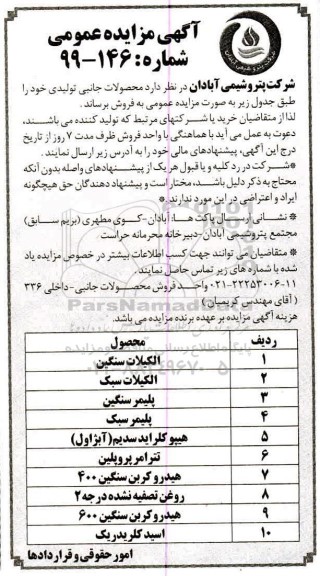 آگهی مزایده عمومی
شماره: ۱۴۶-۹۹
شرکت پتروشیمی آبادان
شرکت پتروشیمی آبادان در نظر دارد محصولات جانبی تولیدی خود را
طبق جدول زیر به صورت مزایده عمومی به فروش برساند.
لذا از متقاضیان خرید یا شرکتهای مرتبط که تولید کننده می باشند،
دعوت به عمل می آید با هماهنگی با واحد فروش ظرف مدت ۷ روز از تاریخ
درج این آگهی، پیشنهادهای مالی خود را به آدرس زیر ارسال نمایند.
*شرکت در رد کلیه و یا قبول هر یک از پیشنهادهای واصله بدون آنکه
محتاج به ذکر دلیل باشد، مختار است و پیشنهاد دهندگان حق هیچگونه
ایراد و اعتراضی در این مورد ندارند.*
* نشانی ارسال پاکت ها: آبادان-کوی مطهری (بریم سابق)
مجتمع پتروشیمی آبادان-دبیرخانه محرمانه حراست.
* متقاضیان می توانند جهت کسب اطلاعات بیشتر در خصوص مزایده یاد
شده با شماره های زیر تماس حاصل نمایند.
۰۲۱-۲۲۲۵۳۰۰۶-۱۱ واحد فروش محصولات جانبی-داخلی ۳۳۶
(آقای مهندس کریمیان)
هزینه آگهی مزایده بر عهده برنده مزایده می باشد.
ردیف محصول
۱ الکیلات سنگین
۲ الکیلات سبک
۳ پلیمر سنگین
۴ پلیمر سبک
۵ هیپو کلراید سدیم (آبژاول)
۶ تترامر پروپلین
۷ هیدروکربن سنگین ۴۰۰
۸ روغن تصفیه نشده درجه ۲
۹ هیدروکربن سنگین ۶۰۰
۱۰ اسید کلریدریک
امور حقوقی و قراردادها